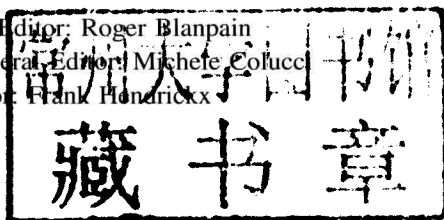 Editor: Roger Blanpain
eral Editor: Michele Colucci
or: Frank Hendrickx
常州大学图书馆
藏书章